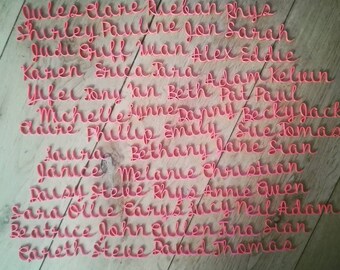 Jules Clare Kieban Rhys
Shirley Pauline Jon Sarah
Judi Gruff Huan Alex Eddie
Karen Erin Tara Adam Kelvin
Tony Jan Beth Pat Paul
Michelle Lynne Danny Becky Jack
Claire Phillip Emily Sue Tomas
Laura Bethany Jane Sian
Janice Melanie Christian
Daisy Steve Rhys Anne Owen
Sara Ollie Carys Lucy Neil Adam
Beatrice John Cullen Tina Sian
Gareth Steve David Thomas